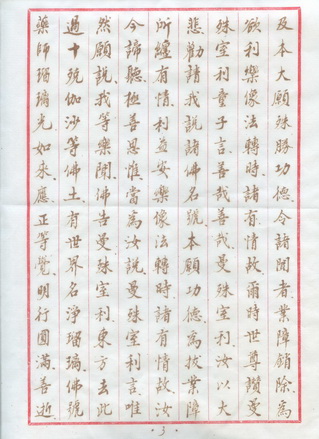 及本大願殊勝功德令諸聞者業障銷除為
欲利樂像法轉時諸有情故爾時世尊讚曼
殊室利童子言善哉善哉曼殊室利汝以大
悲勸請我說諸佛名號本願功德為拔業障
所纏有情利益安樂像法轉時諸有情故汝
今諦聽極善思惟當為汝說曼殊室利言唯
然願說我等樂聞佛告曼殊室利東方去此
過十殑伽沙等佛土有世界名淨瑠璃佛號
藥師瑠璃光如來應正等覺明行圓滿善逝
·3·